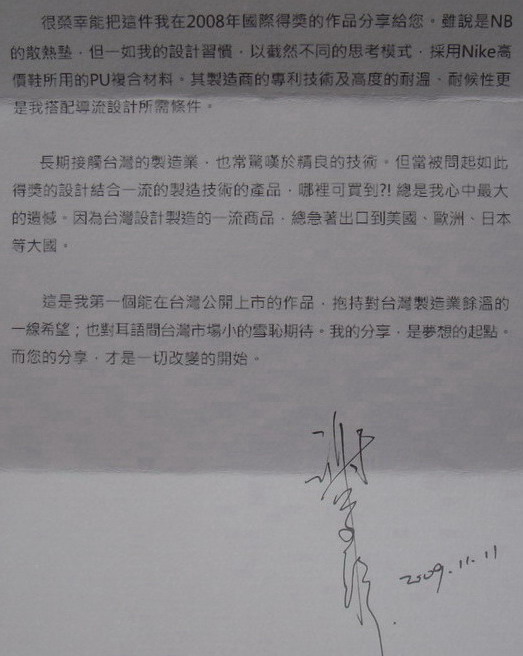 很榮幸能把這件我在2008年國際得獎的作品分享給您。雖說是NB
的散熱墊，但一如我的設計習慣，以截然不同的思考模式，採用Nike高
價鞋所用的PU複合材料。其製造商的專利技術及高度的耐溫，耐候性更
是我搭配導流設計所需條件。
長期接觸台灣的製造業、也常驚嘆於精良的技術。但當被問起如此
得獎的設計結合一流的製造技術的產品，哪裡可買到?! 總是我心中最大
的遺憾。因為台灣設計製造的一流商品，總急著出口到美國、歐洲、日本
等大國。
這是我第一個能在台灣公開上市的作品，抱持對台灣製造業餘溫的
一線希望；也對耳語間台灣市場小的雪恥期待。我的分享，是夢想的起點。
而您的分享，才是一切改變的開始。
謝
2009.11.11